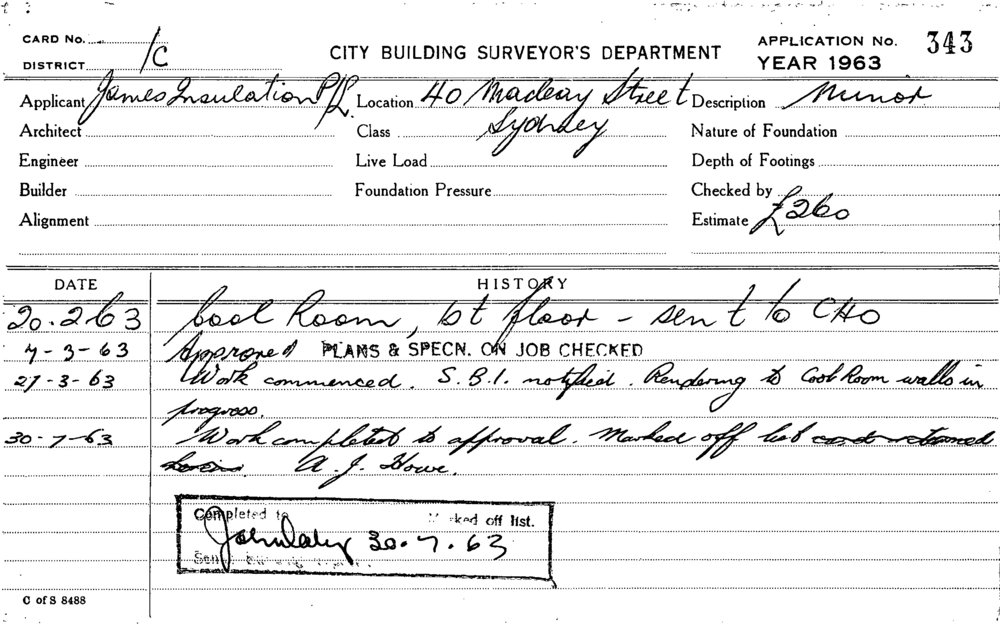 CARD No.
DISTRICT /C
CITY BUILDING SURVEYOR'S DEPARTMENT
APPLICATION No. 343
YEAR 1963
Applicant James Insulation P/L. Location 40 Macleay Street Sydney Description Minor
Architect Class Nature of Foundation
Engineer Live Load Depth of Footings
Builder Foundation Pressure Checked by
Alignment Estimate £260
DATE HISTORY
20.2.63 Cool Room, 1st floor - sent to CHO
7-3-63 Approved PLANS & SPECN. ON JOB CHECKED
27-3-63 Work commenced. S.B.I. notified. Rendering to Cool Room walls in
progress.
30-7-63 Work completed to approval. Marked off list card retained
A. J. Howe.
Completed to Marked off list.
30.7.63
C of S 8488